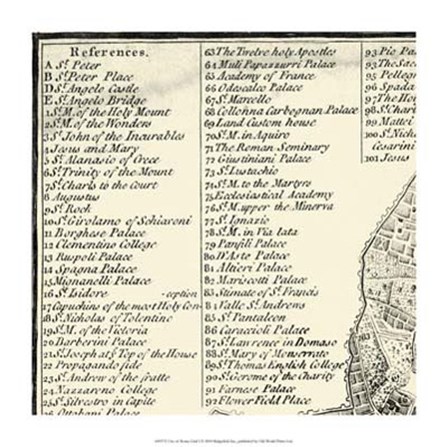 References.
A St. Peter
B St. Peter Place
D St. Angelo Castle
E St. Angelo Bridge
1 St. M. of the Holy Mount
2 St. M. of the Wonders
3 St. John of the Incurables
4 Jesus and Mary
5 St. Atanasio of Grece
6 St. Trinity of the Mount
7 St. Charls to the Court
8 Augustus
9 St. Rock
10 St. Girolamo of Schiaroni
11 Borghese Palace
12 Clementino College
13 Ruspoli Palace
14 Spagna Palace
15 Mignanelli Palace
16 St. Isidore -ception
17 Capuchins of the most Holy Con
18 St. Nicholas of Tolentine
19 St. M. of the Victoria
20 Barberini Palace
21 St. Joseph at ye Top of the House
22 Propaganda fide
23 St. Andrew of the fratte
24 Nazzareno College
25 St. Silvestro in Capite
26 Ottoboni Palace
63 The Twelve holy Apostles
64 Muli Papazzurri Palace
65 Academy of France
66 Odescalco Palace
67 St. Marcello
68 Collonna Carbognan Palace
69 Land Custom house
70 St. M. in Aquiro
71 The Roman Seminary
72 Giustiniani Palace
73 St. Eustachio
74 St. M. to the Martyrs
75 Ecclesiastical Academy
76 St. M. upper the Minerva
77 St. Ignazio
78 St. M. in Via lata
79 Panfili Palace
80 D'Aste Palace
81 Altieri Palace
82 Mariscotti Palace
83 Stimate of St. Francis
84 Valle St. Andrews
85 St. Pantaleon
86 Caraccioli Palace
87 St. Lawrence in Domaso
88 St. Mary of Monserrato
89 St. Thomas English College
90 St. Gerome of the Charity
91 Farnese Palace
92 Flower Field Place
93 Pio Pa
94 The Sac
95 Pellegr
96 Spada
97 The Ho
98 St. Chari
99 Mattei
100 St. Nich
Cosarin
101 Jesus